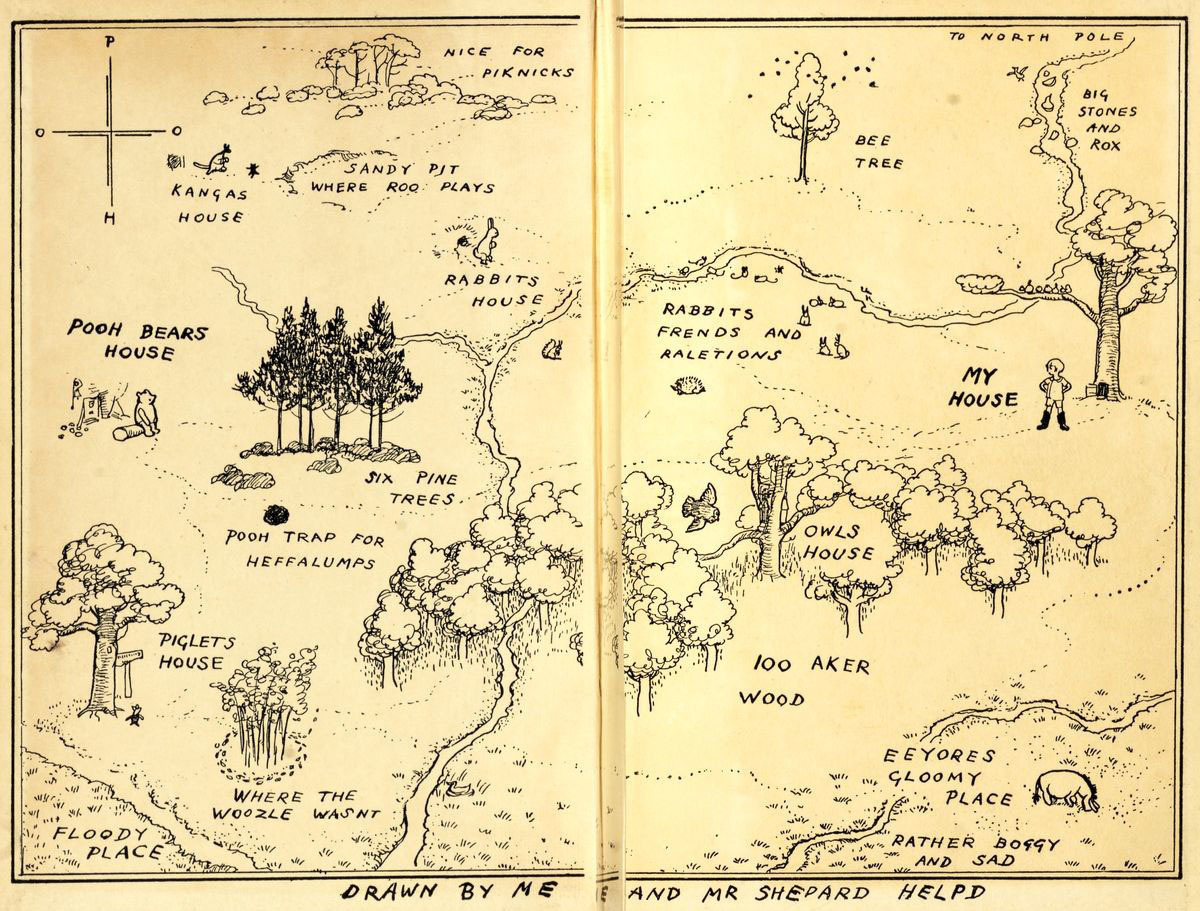 P
O
O
H
NICE FOR
PIKNICKS
KANGAS
HOUSE
SANDY PIT
WHERE ROO PLAYS
RABBITS
HOUSE
POOH BEARS
HOUSE
SIX PINE
TREES
POOH TRAP FOR
HEFFALUMPS
PIGLETS
HOUSE
WHERE THE
WOOZLE WASNT
FLOODY
PLACE
TO NORTH POLE
BIG
STONES
AND
ROX
BEE
TREE
RABBITS
FRENDS AND
RALETIONS
MY
HOUSE
OWLS
HOUSE
100 AKER
WOOD
EEYORES
GLOOMY
PLACE
RATHER BOGGY
AND SAD
DRAWN BY ME
E AND MR SHEPARD HELPD